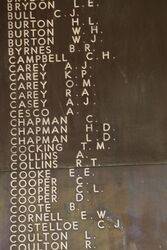 BRYDON L.E.
BULL C.J.
BURTON H.L.
BURTON W.H.
BURTON W.J.
BYRNES B.R.
CAMPBELL C.H.
CAREY A.J.
CAREY K.P.
CAREY O.M.
CAREY R.A.
CASEY A.J.
CESCO A.
CHAPMAN C.H.
CHAPMAN H.D.
CHAPMAN L.D.
COLKING T.M.
COLLINS A.
COLLINS R.T.
COOKE E.
COOPER E.C.
COOPER C.L.
COOPER D.
COOTE B.
CORNELL E.W.
COSTELLOE C.J.
COULTON L.
COULTON R.